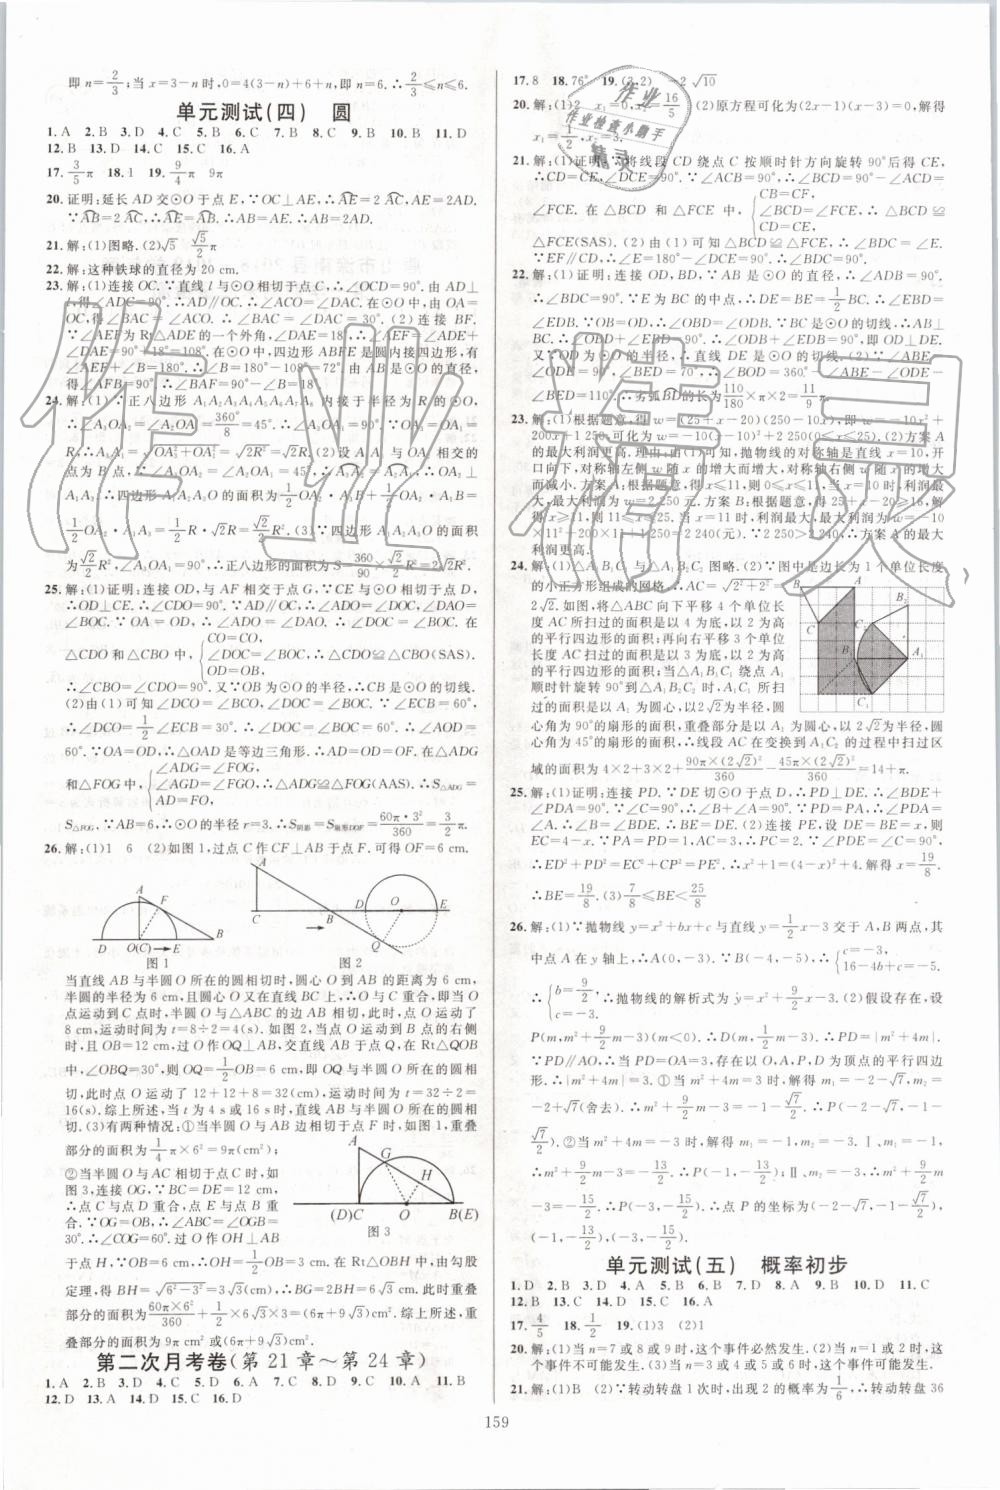 即 n=2/3;当 x=3-n 时,0=4(3-n)+6+n,即 n=6.∴2/3≤n≤6.
单元测试(四) 圆
1.A 2.B 3.D 4.C 5.B 6.C 7.B 8.C 9.B 10.B 11.D
12.B 13.D 14.C 15.C 16.A
17.3/5π 18.1 19.9/4π 9π
20.证明:延长 AD 交⊙O 于点 E.∵OC⊥AE,∴AE=2AC,AE=2AD.
∵AB=2AC,∴AE=AB.∴AB=AE.∴AB=2AD.
21.解:(1)图略.(2)√5 √5/2π
22.解:这种铁球的直径为 20 cm.
23.解:(1)连接 OC.∵直线 l 与⊙O 相切于点 C,∴∠OCD=90°.由 AD⊥
l,得∠ADC=90°.∴AD∥OC.∴∠ACO=∠DAC.在⊙O 中,由 OA=
OC,得∠BAC=∠ACO.∴∠BAC=∠DAC=30°.(2)连接 BF.
∵∠AEF为 Rt△ADE 的一个外角,∠DAE=18°,∴∠AEF=∠ADE+
∠DAE=90°+18°=108°.在⊙O 中,四边形 ABFE 是圆内接四边形,有
∠AEF+∠B=180°.∴∠B=180°-108°=72°.由 AB 是⊙O 的直径,
得∠AFB=90°.∴∠BAF=90°-∠B=18°.
25.解:(1)证明:连接 OD,与 AF 相交于点 G,∵CE 与⊙O 相切于点 D,
∴OD⊥CE.∴∠CDO=90°.∵AD∥OC,∴∠ADO=∠DOC,∠DAO=
∠BOC.∵OA=OD,∴∠ADO=∠DAO.∴∠DOC=∠BOC.在
△CDO 和△CBO 中,{CO=CO,∠DOC=∠BOC,OD=OB,∴△CDO≌△CBO(SAS).
∴∠CBO=∠CDO=90°.又∵OB 为⊙O 的半径,∴CB 是⊙O 的切线.
(2)由(1)可知∠DCO=∠BCO,∠DOC=∠BOC.∵∠ECB=60°,
∴∠DCO=1/2∠ECB=30°.∴∠DOC=∠BOC=60°.∴∠AOD=
60°.∵OA=OD,∴△OAD 是等边三角形.∴AD=OD=OF.在△ADG
和△FOG 中,{∠ADG=∠FOG,∠AGD=∠FGO,AD=FO,∴△ADG≌△FOG(AAS).∴S△ADG=
S△FOG.∵AB=6,∴⊙O 的半径 r=3.∴S阴影=S扇形DOF=60π·3²/360=3/2π.
26.解:(1)1 6 (2)如图 1,过点 C 作 CF⊥AB 于点 F.可得 OF=6 cm.
A F D O(C) E B
图 1
A C B D O E Q
图 2
当直线 AB 与半圆 O 所在的圆相切时,圆心 O 到 AB 的距离为 6 cm,
半圆的半径为 6 cm,且圆心 O 又在直线 BC 上,∴O 与 C 重合,即当 O
点运动到 C 点时,半圆 O 与△ABC 的边 AB 相切,此时,点 O 运动了
8 cm,运动时间为 t=8÷2=4(s).如图 2,当点 O 运动到 B 点的右侧
时,且 OB=12 cm,过 O 作 OQ⊥AB,交直线 AB 于点 Q,在 Rt△QOB
中,∠OBQ=30°,则 OQ=6 cm,即 OQ 与半圆 O 所在的圆相切,
此时点 O 运动了 12+12+8=32(cm),运动时间为 t=32÷2=
16(s).综上所述,当 t 为 4 s 或 16 s 时,直线 AB 与半圆 O 所在的圆相
切.(3)有两种情况:①当半圆 O 与 AB 相切于点 F 时,如图 1,重叠
部分的面积为1/4π×6²=9π(cm²);
②当半圆 O 与 AC 相切于点 C 时,如
图 3,连接 OG,∵BC=DE=12 cm,
∴点 C 与点 D 重合,点 E 与点 B 重
合.∵OG=OB,∴∠OGB=∠OBG=
30°.∴∠COG=60°.过 O 作 OH⊥AB
A G H (D)C O B(E)
图 3
于点 H,∵OB=6 cm,∴OH=1/2OB=3 cm.在 Rt△OBH 中,由勾股
定理,得 BH=√6²-3²=3√3(cm).∴BG=2BH=6√3 cm.此时重叠
部分的面积为60π×6²/360+1/2×6√3×3=(6π+9√3)cm².综上所述,重
叠部分的面积为 9π cm²或(6π+9√3)cm².
第二次月考卷(第 21 章~第 24 章)
1.A 2.B 3.D 4.C 5.D 6.C 7.D 8.C 9.A 10.A 11.B
12.D 13.A 14.D 15.C 16.D
17.8 18.76° 19.(3,2) √10
21.解:(1)证明:∵将线段 CD 绕点 C 按顺时针方向旋转 90°后得 CE,
∴CD=CE,∠DCE=90°.∵∠ACB=90°,∴∠BCD=90°-∠ACD=
∠FCE.在△BCD 和△FCE 中,{CB=CF,∠BCD=∠FCE,CD=CE,∴△BCD≌
△FCE(SAS).(2)由(1)可知△BCD≌△FCE,∴∠BDC=∠E.
∵EF∥CD,∴∠E=180°-∠DCE=90°.∴∠BDC=90°.
22.解:(1)证明:连接 OD,BD,∵AB 是⊙O 的直径,∴∠ADB=
∠BDC=90°.∵E 为 BC 的中点,∴DE=BE=1/2BC.∴∠EBD=
∠EDB.∵OB=OD,∴∠OBD=∠ODB.∵BC 是⊙O 的切线,∴AB⊥
BC.∴∠OBD+∠EBD=90°.∴∠ODB+∠EDB=90°,即 OD⊥DE.
又∵OD 为⊙O 的半径,∴直线 DE 是⊙O 的切线.(2)∵∠ABE=
∠ODE=90°,∠BED=70°,∴∠BOD=360°-∠ABE-∠ODE-
∠BED=110°.∴劣弧BD的长为110/180π×2=11/9π.
23.解:(1)根据题意,得 w=(25+x-20)(250-10x),即 w=-10x²+
200x+1 250,可化为 w=-10(x-10)²+2 250(0≤x≤25).(2)方案 A
的最大利润更高.理由:由(1)可知,抛物线的对称轴是直线 x=10,开
口向下,对称轴左侧 w 随 x 的增大而增大,对称轴右侧 w 随 x 的增大
而减小.方案 A:根据题意,得 x≤11,则 0≤x≤11,当 x=10 时,利润最
大,最大利润为 w=2 250 元.方案 B:根据题意,得 25+x-20≥16,解
得 x≥11,则 11≤x≤25.当 x=11 时,利润最大,最大利润为 w=-10
×11²+200×11+1 250=2 240(元).∵2 250>2 240,∴方案 A 的最大
利润更高.
24.解:(1)△A₁B₁C₁与△A₁B₂C₂图略.(2)∵图中是边长为 1 个单位长度
的小正方形组成的网格,∴AC=√2²+2²=
2√2.如图,将△ABC 向下平移 4 个单位长
度 AC 所扫过的面积是以 4 为底,以 2 为高
的平行四边形的面积;再向右平移 3 个单位
AC 所扫过的面积是以 3 为底,以 2 为高
的平行四边形的面积;当△A₁B₁C₁绕点 A₁
顺时针旋转 90°到△A₁B₂C₂时,A₁C₁所扫
过的面积是以 A₁为圆心,以 2√2为半径,圆
心角为 90°的扇形的面积,重叠部分是以 A₁为圆心,以 2√2为半径,圆
心角为 45°的扇形的面积,∴线段 AC 在变换到 A₁C₂的过程中扫过区
域的面积为 4×2+3×2+90π×(2√2)²/360-45π×(2√2)²/360=14+π.
25.解:(1)证明:连接 PD.∵DE 切⊙O 于点 D,∴PD⊥DE.∴∠BDE+
∠PDA=90°.∵∠C=90°,∴∠B+∠A=90°.∵PD=PA,∴∠PDA=
∠A.∴∠B=∠BDE.∴BE=DE.(2)连接 PE,设 DE=BE=x,则
EC=4-x.∵PA=PD=1,AC=3,∴PC=2.∵∠PDE=∠C=90°,
∴ED²+PD²=EC²+CP²=PE².∴x²+1=(4-x)²+4.解得 x=19/8.
∴BE=19/8.(3)7/8≤BE<25/8
26.解:(1)∵抛物线 y=x²+bx+c 与直线 y=1/2x-3 交于 A,B 两点,其
中点 A 在 y 轴上,∴A(0,-3).∵B(-4,-5),∴{c=-3,16-4b+c=-5.
∴{b=9/2,c=-3.∴抛物线的解析式为 y=x²+9/2x-3.(2)假设存在,设
P(m,m²+9/2m-3)(m<0).∴D(m,1/2m-3).∴PD=|m²+4m|.
∵PD∥AO,∴当 PD=OA=3,存在以 O,A,P,D 为顶点的平行四边
形.∴|m²+4m|=3.①当 m²+4m=3 时,解得 m₁=-2-√7,m₂=
-2+√7(舍去).∴m²+9/2m-3=-1-√7/2.∴P(-2-√7,-1-
√7/2).②当 m²+4m=-3 时,解得 m₁=-1,m₂=-3.Ⅰ、m₁=-1,
∴m²+9/2m-3=-13/2.∴P(-1,-13/2);Ⅱ、m₂=-3,∴m²+9/2m
-3=-15/2.∴P(-3,-15/2).∴点 P 的坐标为(-2-√7,-1-√7/2),
(-1,-13/2),(-3,-15/2).
单元测试(五) 概率初步
1.D 2.B 3.D 4.A 5.B 6.B 7.D 8.A 9.B 10.D 11.C
12.B 13.C 14.C 15.C 16.A
17.4/5 18.1/2 19.(1)3 (2)1
20.解:(1)当 n=7 或 8 或 9 时,这个事件必然发生.(2)当 n=1 或 2 时,这个
事件不可能发生.(3)当 n=3 或 4 或 5 或 6 时,这个事件可能发生.
21.解:(1)B (2)∵转动转盘 1 次时,出现 2 的概率为1/6,∴转动转盘 36
159